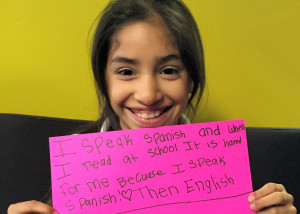 I speak Spanish and when
I read at school It is hard
for me Because I speak
Spanish! ♡ Then English